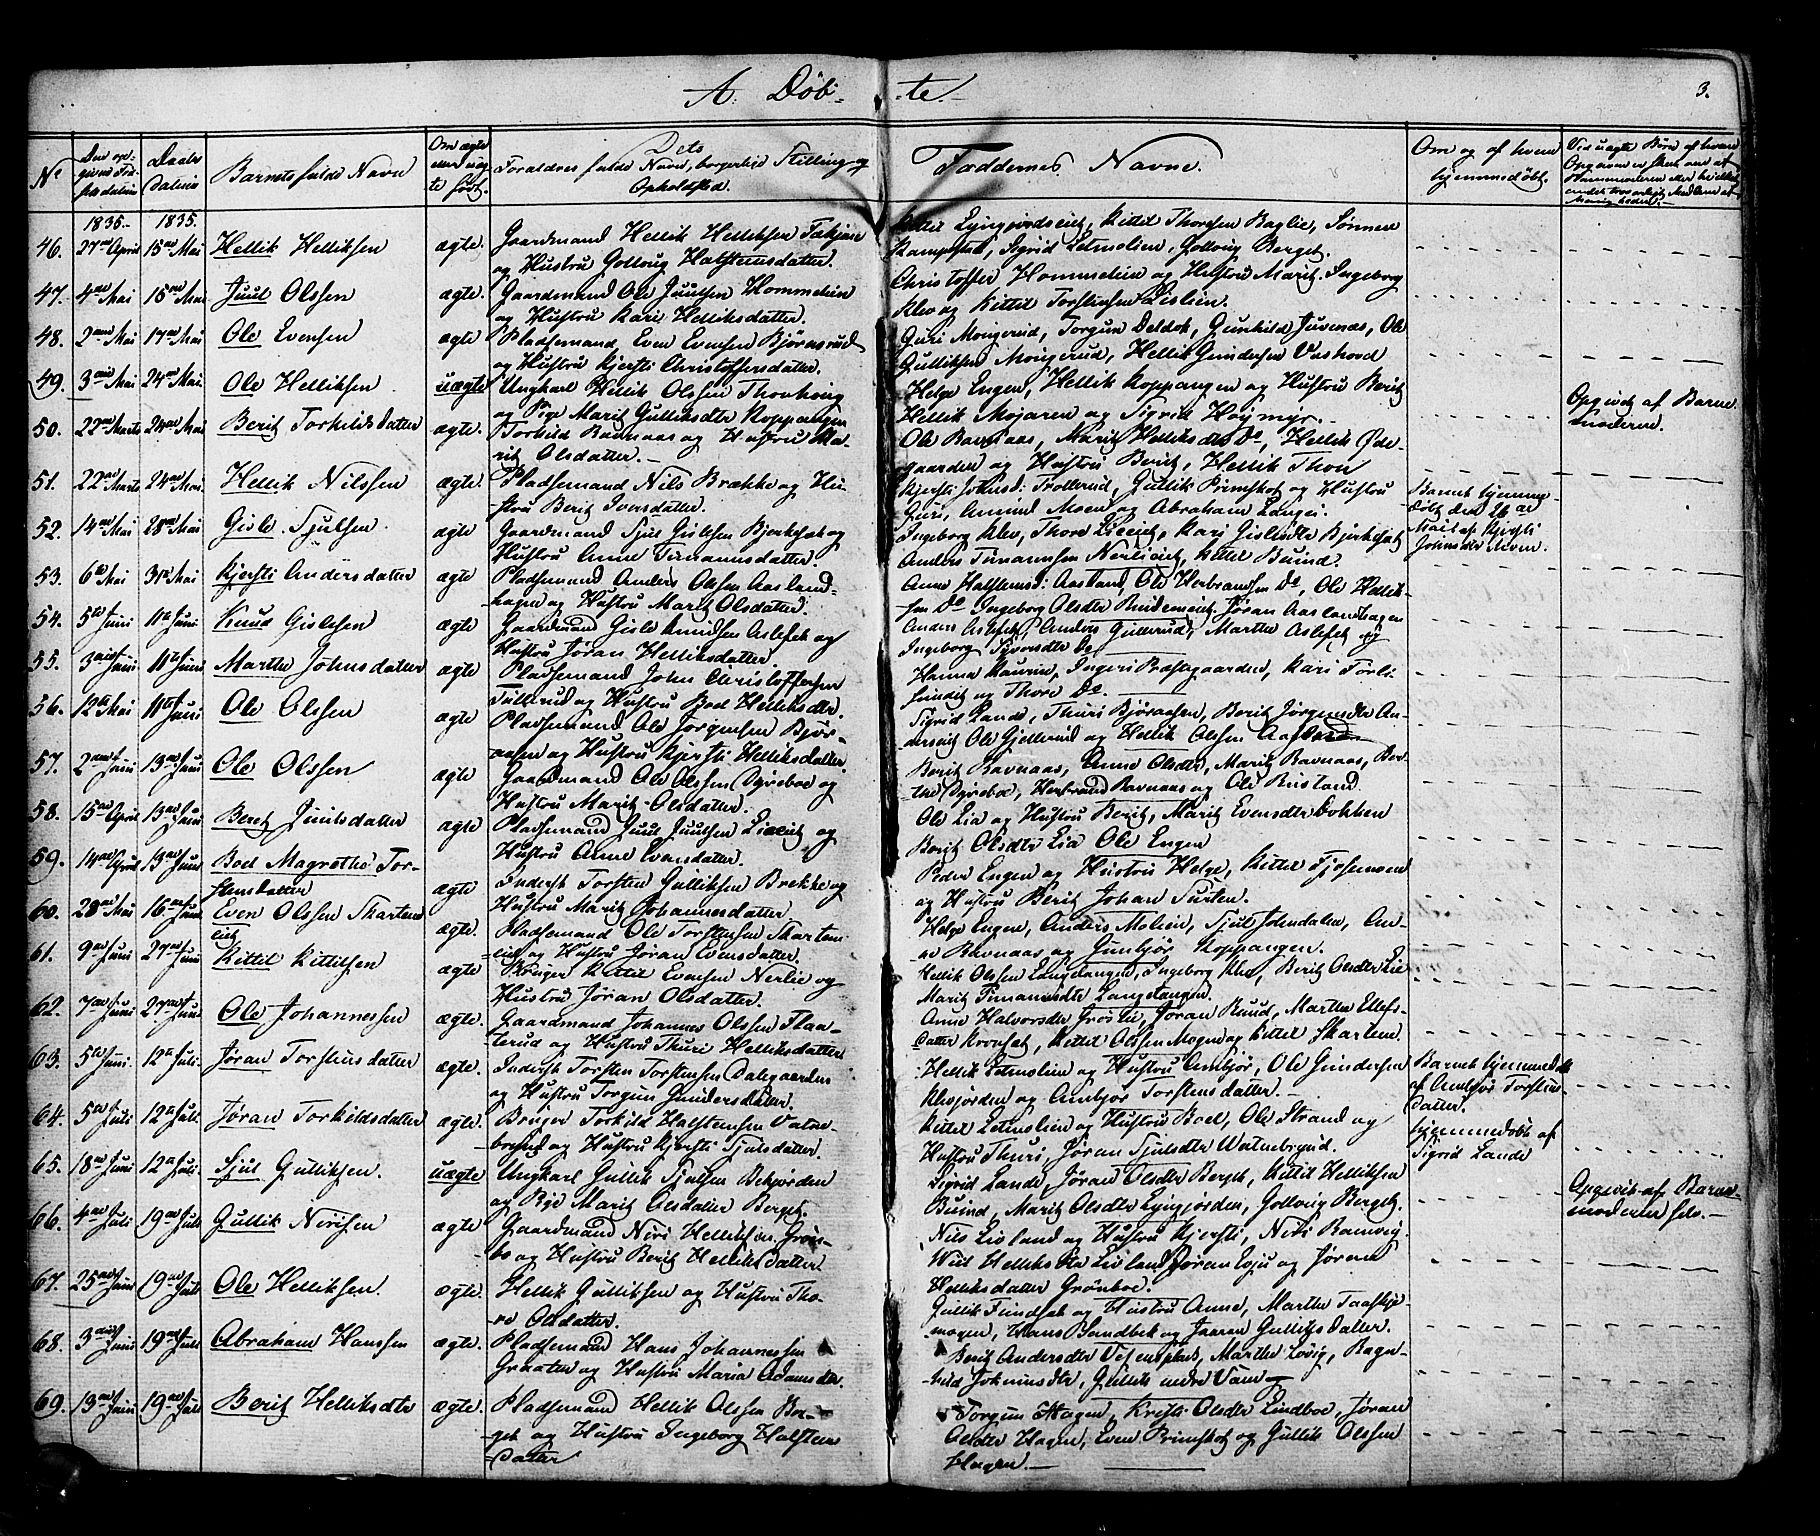 A. Døb- -te.-
3.
Nº
Den opgivne Fødselsdatum
Daabs Datum
Barnets fulde Navn
Om ægte eller uægte født.
Dets Forældres fulde Navn, borgerlige Stilling og Opholdsted.
Faddernes Navne.
Om og af hvem hjemmedøbt.
1835. 1835.
46. 27de April 15de Mai Hellik Helliksen ægte. Gaardmand Hellik Helliksen
og Hustru Gollaug Halsteensdatter.
Kittil Thorsen Baglie,
Sigrid Letmolien, Gollaug Berget.
47. 4de Mai 15de Mai Juul Olssen ægte. Gaardmand Ole Juulsen Hommelien
og Hustru Kari Helliksdatter.
Christoffer Hommelien og Hustru Marit. Ingeborg
Klev og Kittil Torstensen Lislien.
48. 2den Mai 17de Mai Ole Evensen ægte Pladsemand, Even Evensen Bjørnsrud
og Hustru Kjersti Christoffersdatter.
Guri Mongerud, Torgun Deldok, Gunhild Juvenæs, Ole
Gulliksen Mongerud, Hellik Gundersen
49. 3die Mai 24de Mai. Ole Helliksen uægte Ungkarl Hellik Olssen
og Pige Marit Gulliksdtr Koppangen
Helge Engen, Hellik Koppangen og Hustru Berit
Hellik Mojaren og Sigrid Høymyr.
Opgivet af Barne
moderen.
50. 22de Marts 24de Mai Berit Torkildsdatter ægte. Torkild Ravnaas og Hustru Ma-
rit Olsdatter.-
Ole Ravnaas, Marit Helliksdtr Do, Hellik Øde-
gaarden og Hustru Berit, Hellik Thon
51. 22de Marts 24de Mai Hellik Nilssen ægte. Pladsemand Nils Brække og Hu-
stru Berit Iversdatter.
Kjersti Johnsd: Trollerud, Gullik Primstok og Hustru
Guri, Amund Moen og Abraham
Barnet hjemme-
døbt den 26de
52. 14de Mai 28de Mai Gisle Sjulsen ægte Gaardmand Sjul Gislesen Bjerkeset og
Hustru Anne Timannsdatter.
Ingeborg Klev, Thore Lieeiet, Kari Gislesdtr Bjerkeset
Anders Timannsen Nerlieiet, Kittil Buind.
af Kjersti
Johnsdtr
53. 6te Mai 31te Mai Kjersti Andersdatter ægte Pladsemand Anders Olssen Aasland-
hagen og Hustru Marit Olsdatter.
Anne Halsteensd: Aasland, Ole Herbrandsen Do, Ole Hellik-
sen Do Ingeborg Olsdtr Jøran Aaslandhagen
54. 5te Juni 11te Juni Knud Gislesen ægte Gaardmand Gisle Knudsen Aslefet og
Hustru Jøran Helliksdatter.
Anders Aslefet, Anders Gullerud, Marthe Aslefet og
Ingeborg Sjversdtr Do
55. 3die Juni 11te Juni Marthe Johnsdatter ægte Pladsemand John Christoffersen
og Hustru Boel Helliksdtr.
Hanna Ingeri Prestgaarden, Kari
og Thore Do.
56. 12te Mai 11te Juni Ole Olssen ægte Pladsemand Ole Jørgensen Bjør-
aasen og Hustru Kjersti Helliksdatter.
Sigrid Lande, Thuri Bjøraasen, Berit Jørgensdtr An-
derseiet Ole Gjellerud og Hellik Olssen
57. 2den Juni 13de Juni Ole Olssen ægte Gaardmand Ole Olssen Dyreboe og
Hustru Marit Olsdatter.
Berit Ravnaas, Anne Olsdtr, Marit Ravnaas, Ber-
the Dyreboe, Herbrand Ravnaas og Ole Rustand.
58. 15de April 13de Juni Beret Juulsdatter ægte Pladsemand Juul Juulsen Lieeiet og
Hustru Anne Evensdatter.
Ole Lia og Hustru Berit, Marit Evensdtr
Berit Olsdtr Lia Ole Engen
59. 14de April 13de Juni Boel Magrethe Tor-
stensdatter ægte Inderst Torsten Gulliksen Brekke og
Hustru Marit Johannesdatter.
Peder Engen og Hustru Helge, Kittil
og Hustru Berit Johan
60. 28de Mai 16de Juni Even Olssen Skartum
liet ægte. Pladsemand Ole Torstensen Skartum-
liet og Hustru Jøran Evensdatter.
Helge Engen, Anders Molien, Sjul Johndalen, An-
ne Ravnaas og Gunbjør Koppangen.
61. 9de Juni 27de Juni Kittil Kittilsen ægte Bruger Kittil Evensen Nerlie og
Hustru Jøran Olsdatter.
Hellik Olssen Langetangen, Ingeborg Klev, Berit Olsdtr Lie
Marit Timannsdtr Langetangen.
62. 7de Juni 27de Juni Ole Johannessen ægte Gaardmand Johannes Olssen Flaa-
terud og Hustru Thuri Helliksdatter
Anne Halvorsdtr Jøran Ruud, Marthe Ellefs-
datter Kittil Olssen Mogen og Kittil Skartum.
63. 5te Juni. 12te Juli. Jøran Torstensdatter ægte Inderst Torsten Torstensen Dalegaarden
og Hustru Torgun Gundersdatter.
Hellik Letmolien og Hustru Ambjør, Ole Gundersen
Klevjorden og Ambjør Torstensdatter.-
Barnet hjemmedøbt
af Ambjør Torstens
datter.
64. 5te Juli 12te Juli. Jøran Torkildsdatter ægte. Bruger Torkild Halsteensen Vatne-
brynd og Hustru Kjersti Sjulsdatter.
Kittil Letmolien og Hustru Boel, Ole Strand og
Hustru Thuri, Jøran Sjulsdtr Watnebrynd.
hjemmedøbt af
Sigrid Lande
65. 18de Juni 12te Juli. Sjul Gulliksen. uægte Ungkarl Gullik Sjulsen Bekjorden
og Pige Marit Olsdatter Berget.
Sigrid Lande, Jøran Olsdtr Berget, Kittil Helliksen
Buind, Marit Olsdtr Gollaug Berget.
Opgivet af Barne-
moderen selv.-
66. 4de Juli 19de Juli Gullik Nirisen ægte Gaardmand Niri Helliksen Grøn-
bo og Hustru Berit Helliksdatter
Nils Livland og Hustru Kjersti, Niri Ramvig
Helliksdtr Livland Jøran og Jøran
Helliksdatter Grønboe.
67. 25de Juni 19de Juli Ole Helliksen. ægte. Hellik Gulliksen og Hustru Tho-
re Olsdatter.
Gullik og Hustru Anne, Marthe
mogen, Hans Sandbek og Jøran Gulliksdatter.
68. 3die Juni 19de Juli Abraham Hanssen ægte. Pladsemand Hans Johannessen
og Hustru Maria Adamsdtr.
Berit Andersdtr Marthe Løvig, Ragn-
hild Johannesdtr, Gullik nedre
69. 13de Juni 19de Juli Berit Helliksdtr ægte. Pladsemand Hellik Olssen Ber-
get og Hustru Ingeborg Halsteen
datter
Torgun Hagen, Kristi Olsdtr Lindboe, Jøran
Olsdtr Hagen, Even Primstok og Gullik Olssen
Hagen.-